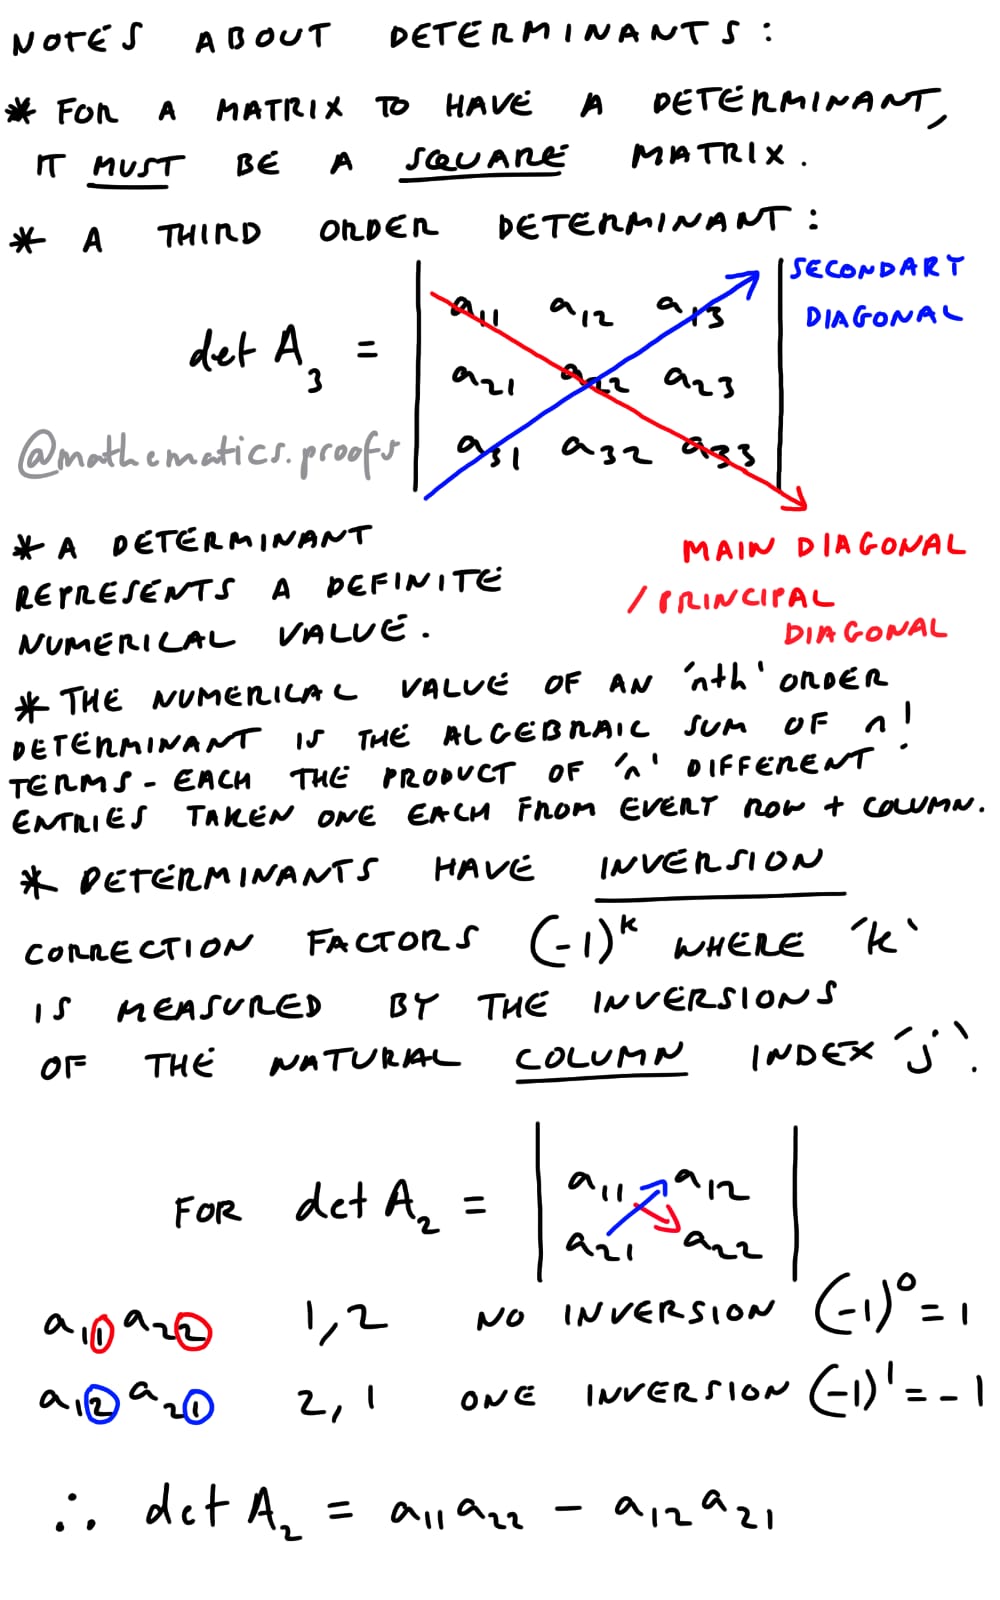 NOTES ABOUT DETERMINANTS:
* FOR A MATRIX TO HAVE A DETERMINANT,
IT MUST BE A SQUARE MATRIX.
* A THIRD ORDER DETERMINANT:
SECONDARY
DIAGONAL
det A₃ = | a₁₁ a₁₂ a₁₃ |
| a₂₁ a₂₂ a₂₃ |
| a₃₁ a₃₂ a₃₃ |
@mathematics.proofs
MAIN DIAGONAL
/ PRINCIPAL
DIAGONAL
* A DETERMINANT
REPRESENTS A DEFINITE
NUMERICAL VALUE.
* THE NUMERICAL VALUE OF AN 'nth' ORDER
DETERMINANT IS THE ALGEBRAIC SUM OF n!
TERMS - EACH THE PRODUCT OF 'n' DIFFERENT
ENTRIES TAKEN ONE EACH FROM EVERY ROW + COLUMN.
* DETERMINANTS HAVE INVERSION
CORRECTION FACTORS (-1)ᵏ WHERE 'k'
IS MEASURED BY THE INVERSIONS
OF THE NATURAL COLUMN INDEX 'j'.
FOR det A₂ = | a₁₁ a₁₂ |
| a₂₁ a₂₂ |
a₁₁ a₂₂ 1,2 NO INVERSION (-1)⁰ = 1
a₁₂ a₂₁ 2,1 ONE INVERSION (-1)¹ = -1
∴ det A₂ = a₁₁a₂₂ - a₁₂a₂₁